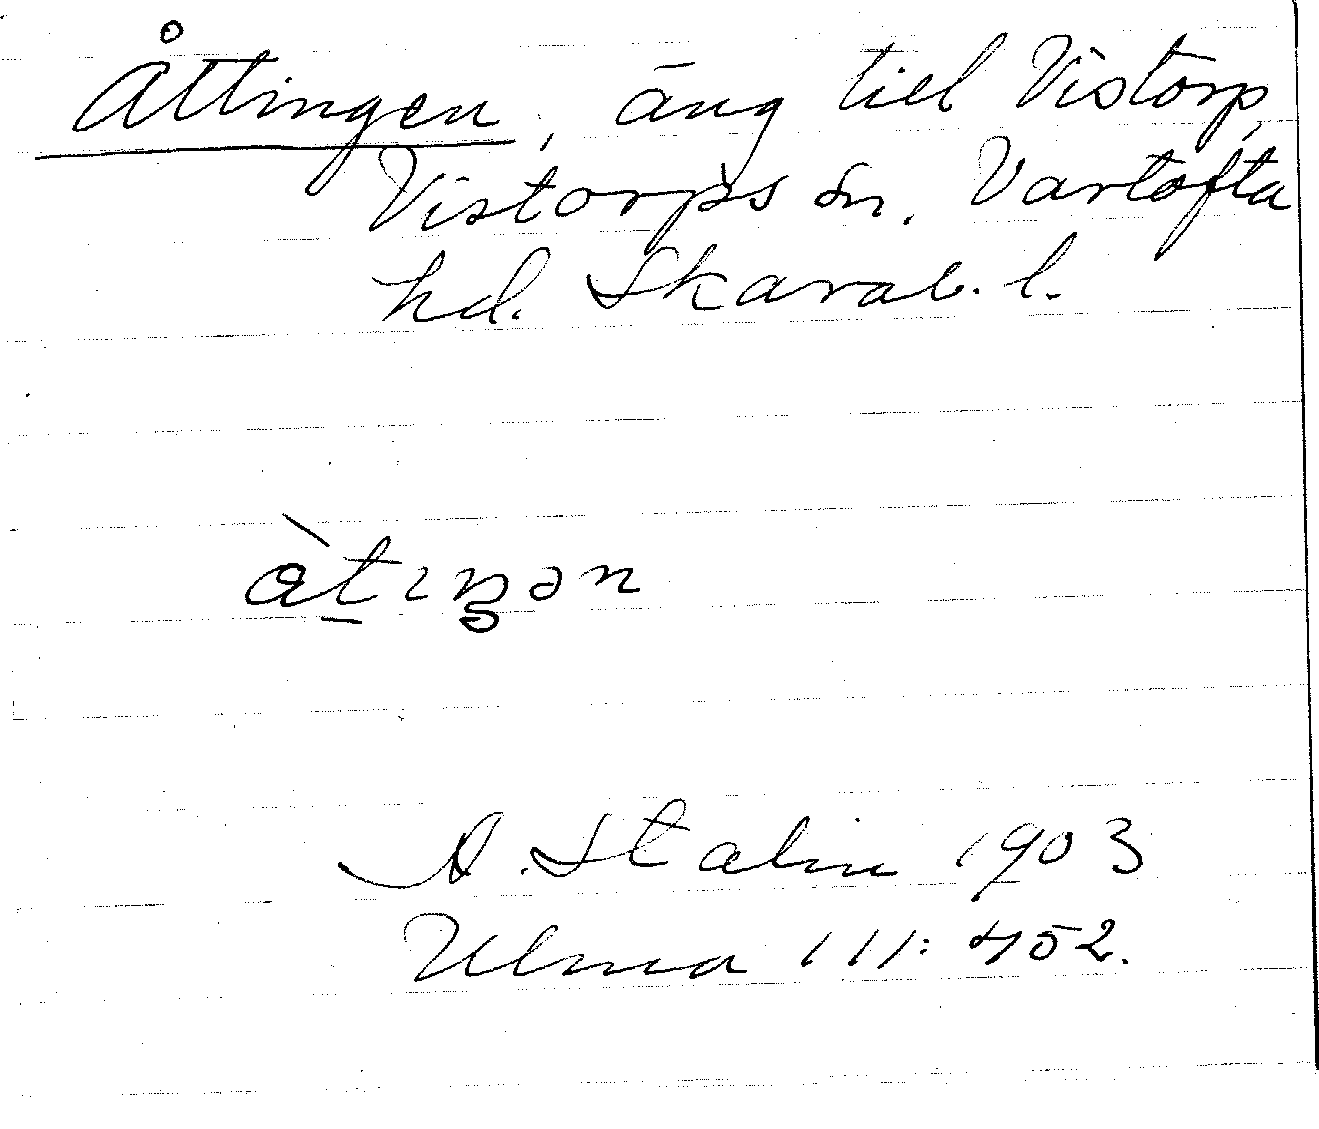 Åttingen, äng till Vistorp,
Vistorps sn. Vartofta
hd. Skarab. l.
àt̠ıŋən
A. Stalin 1903
Ulma 111: 452.